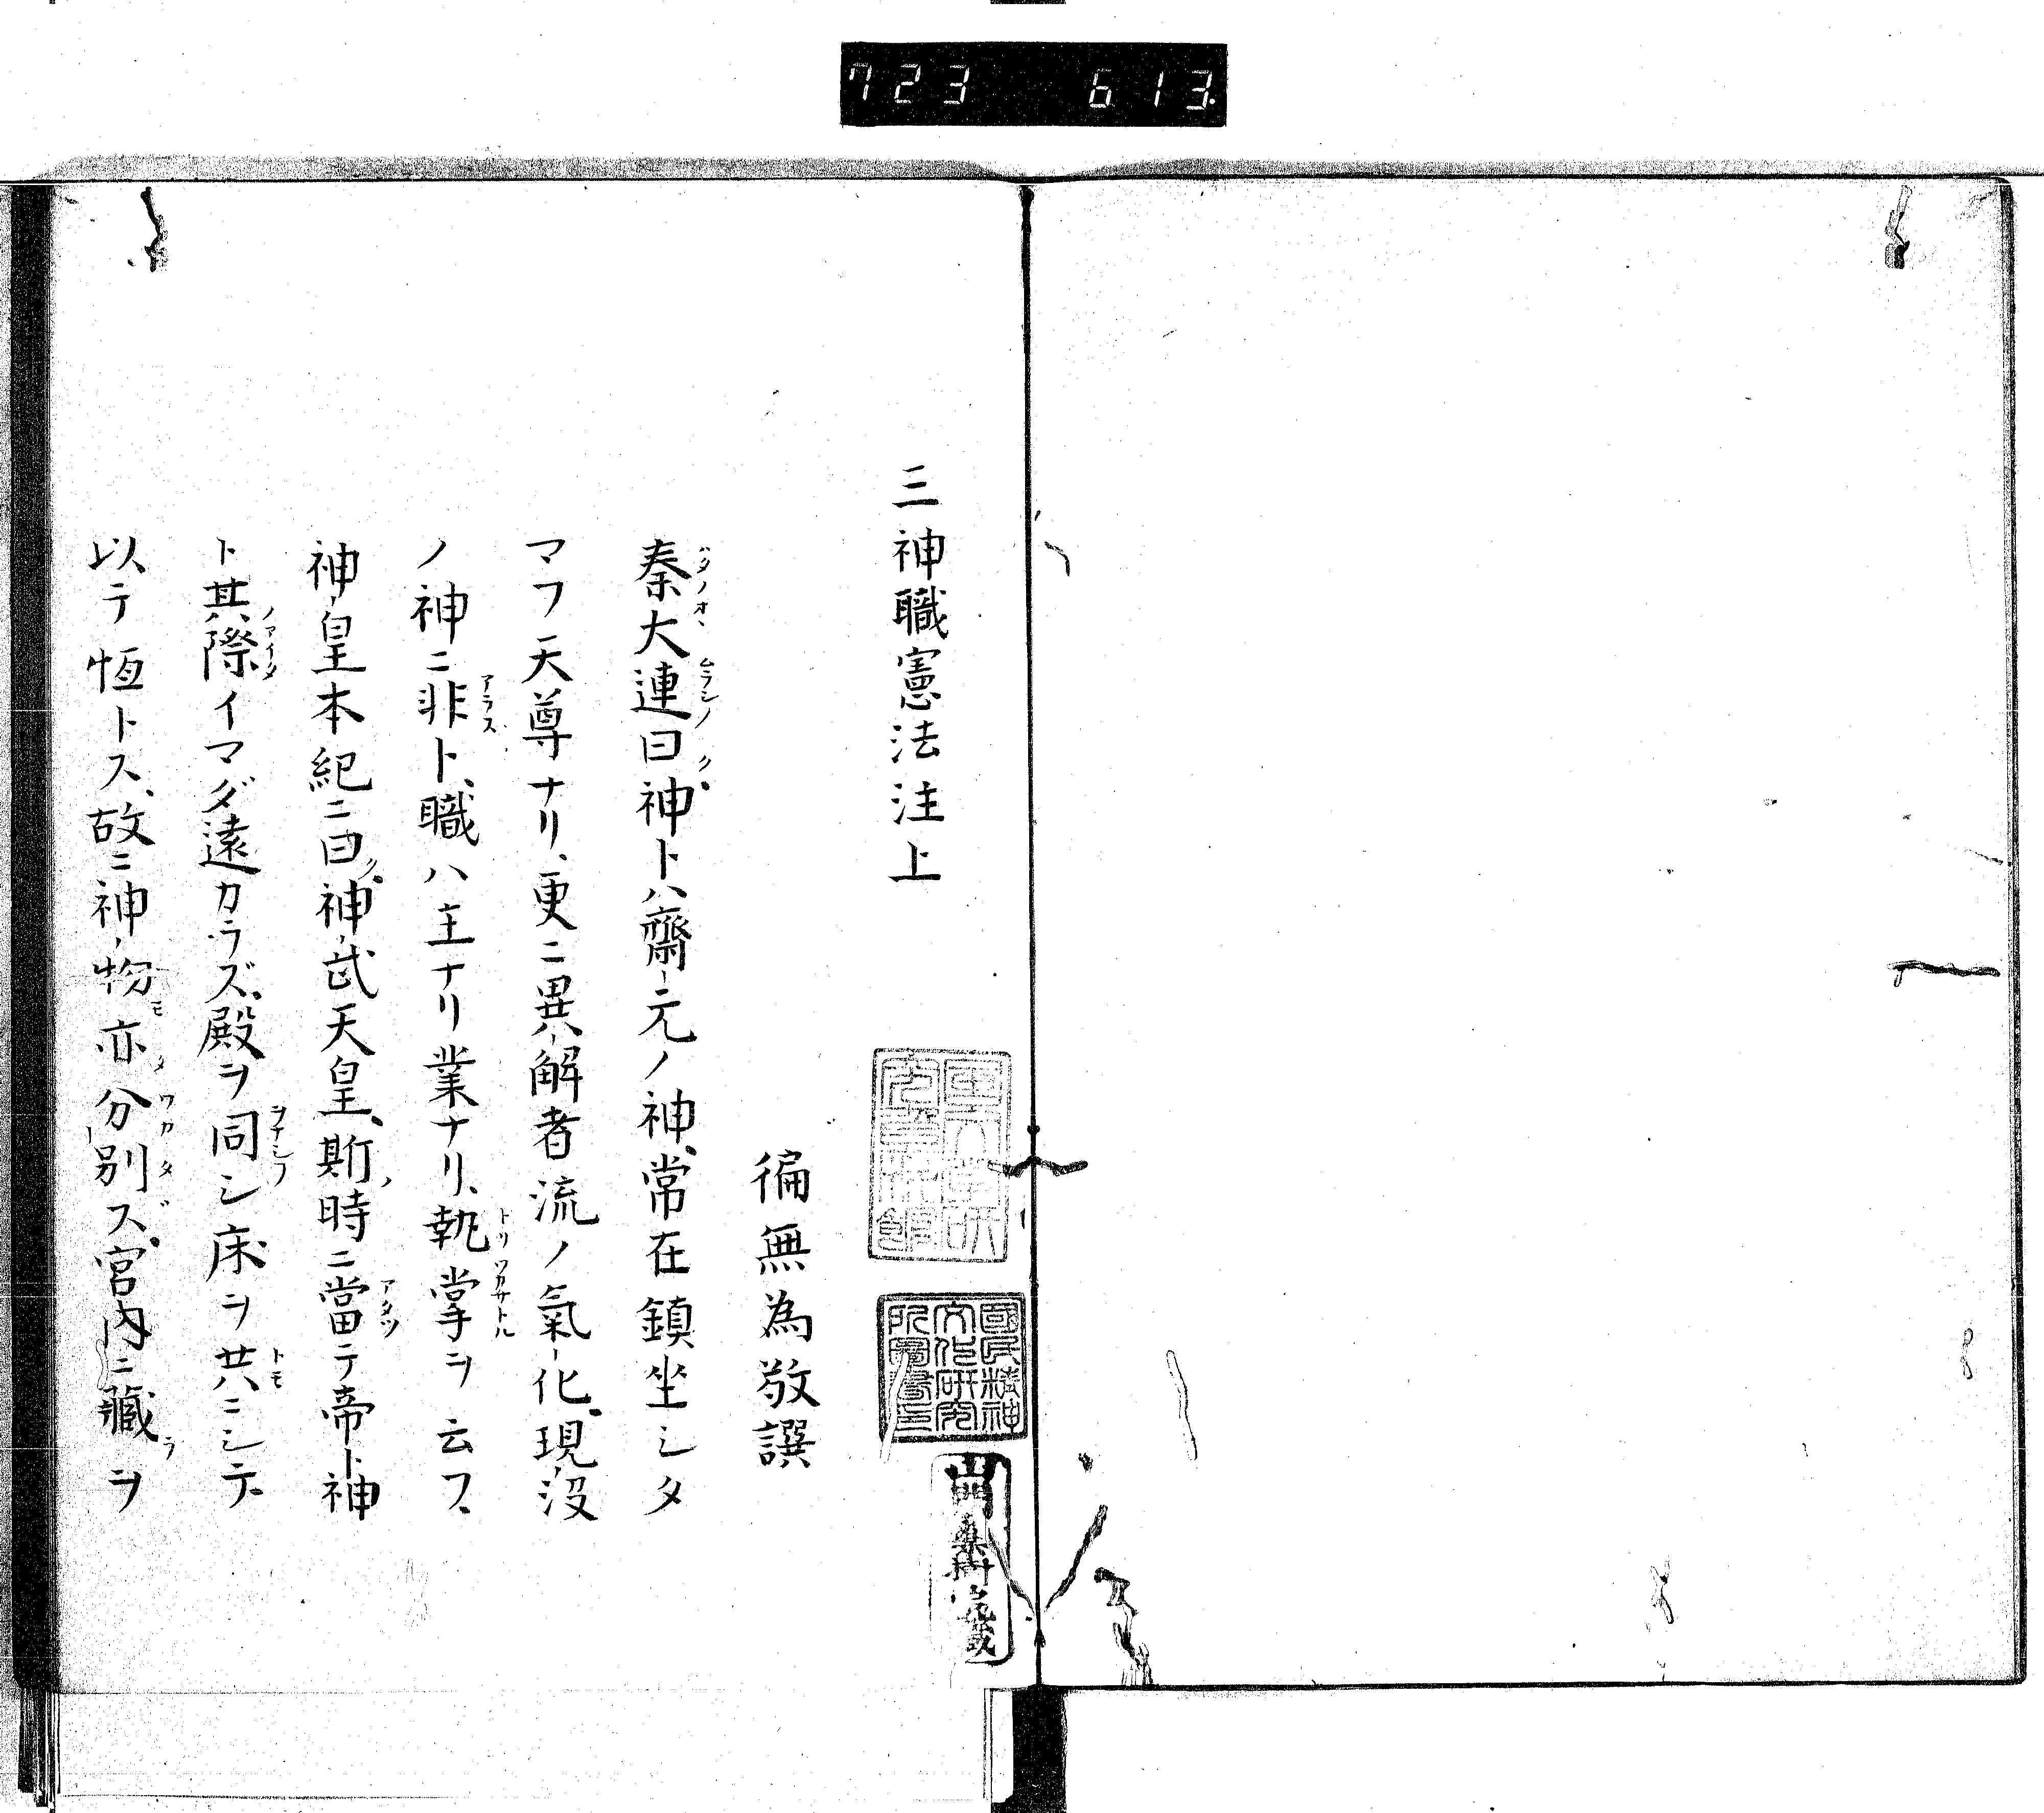 723 613
三神職憲法注上
徧無為敬譔
秦大連曰神トハ齋元ノ神、常在鎮坐シタ
マフ天尊ナリ、更ニ異ハ解者流ノ氣化、現没
ノ神ニ非ト、職ハ主ナリ業ナリ、執掌ヲ云フ、
神皇本紀ニ曰ク神武天皇、斯時ニ當テ帝ト神
ト其際イマダ遠カラズ、殿ヲ同シ床ヲ共ニシテ
以テ恆トス、故ニ神物亦分別ス、宮内ニ藏ヲ
國民精神
文化研究
所圖書印